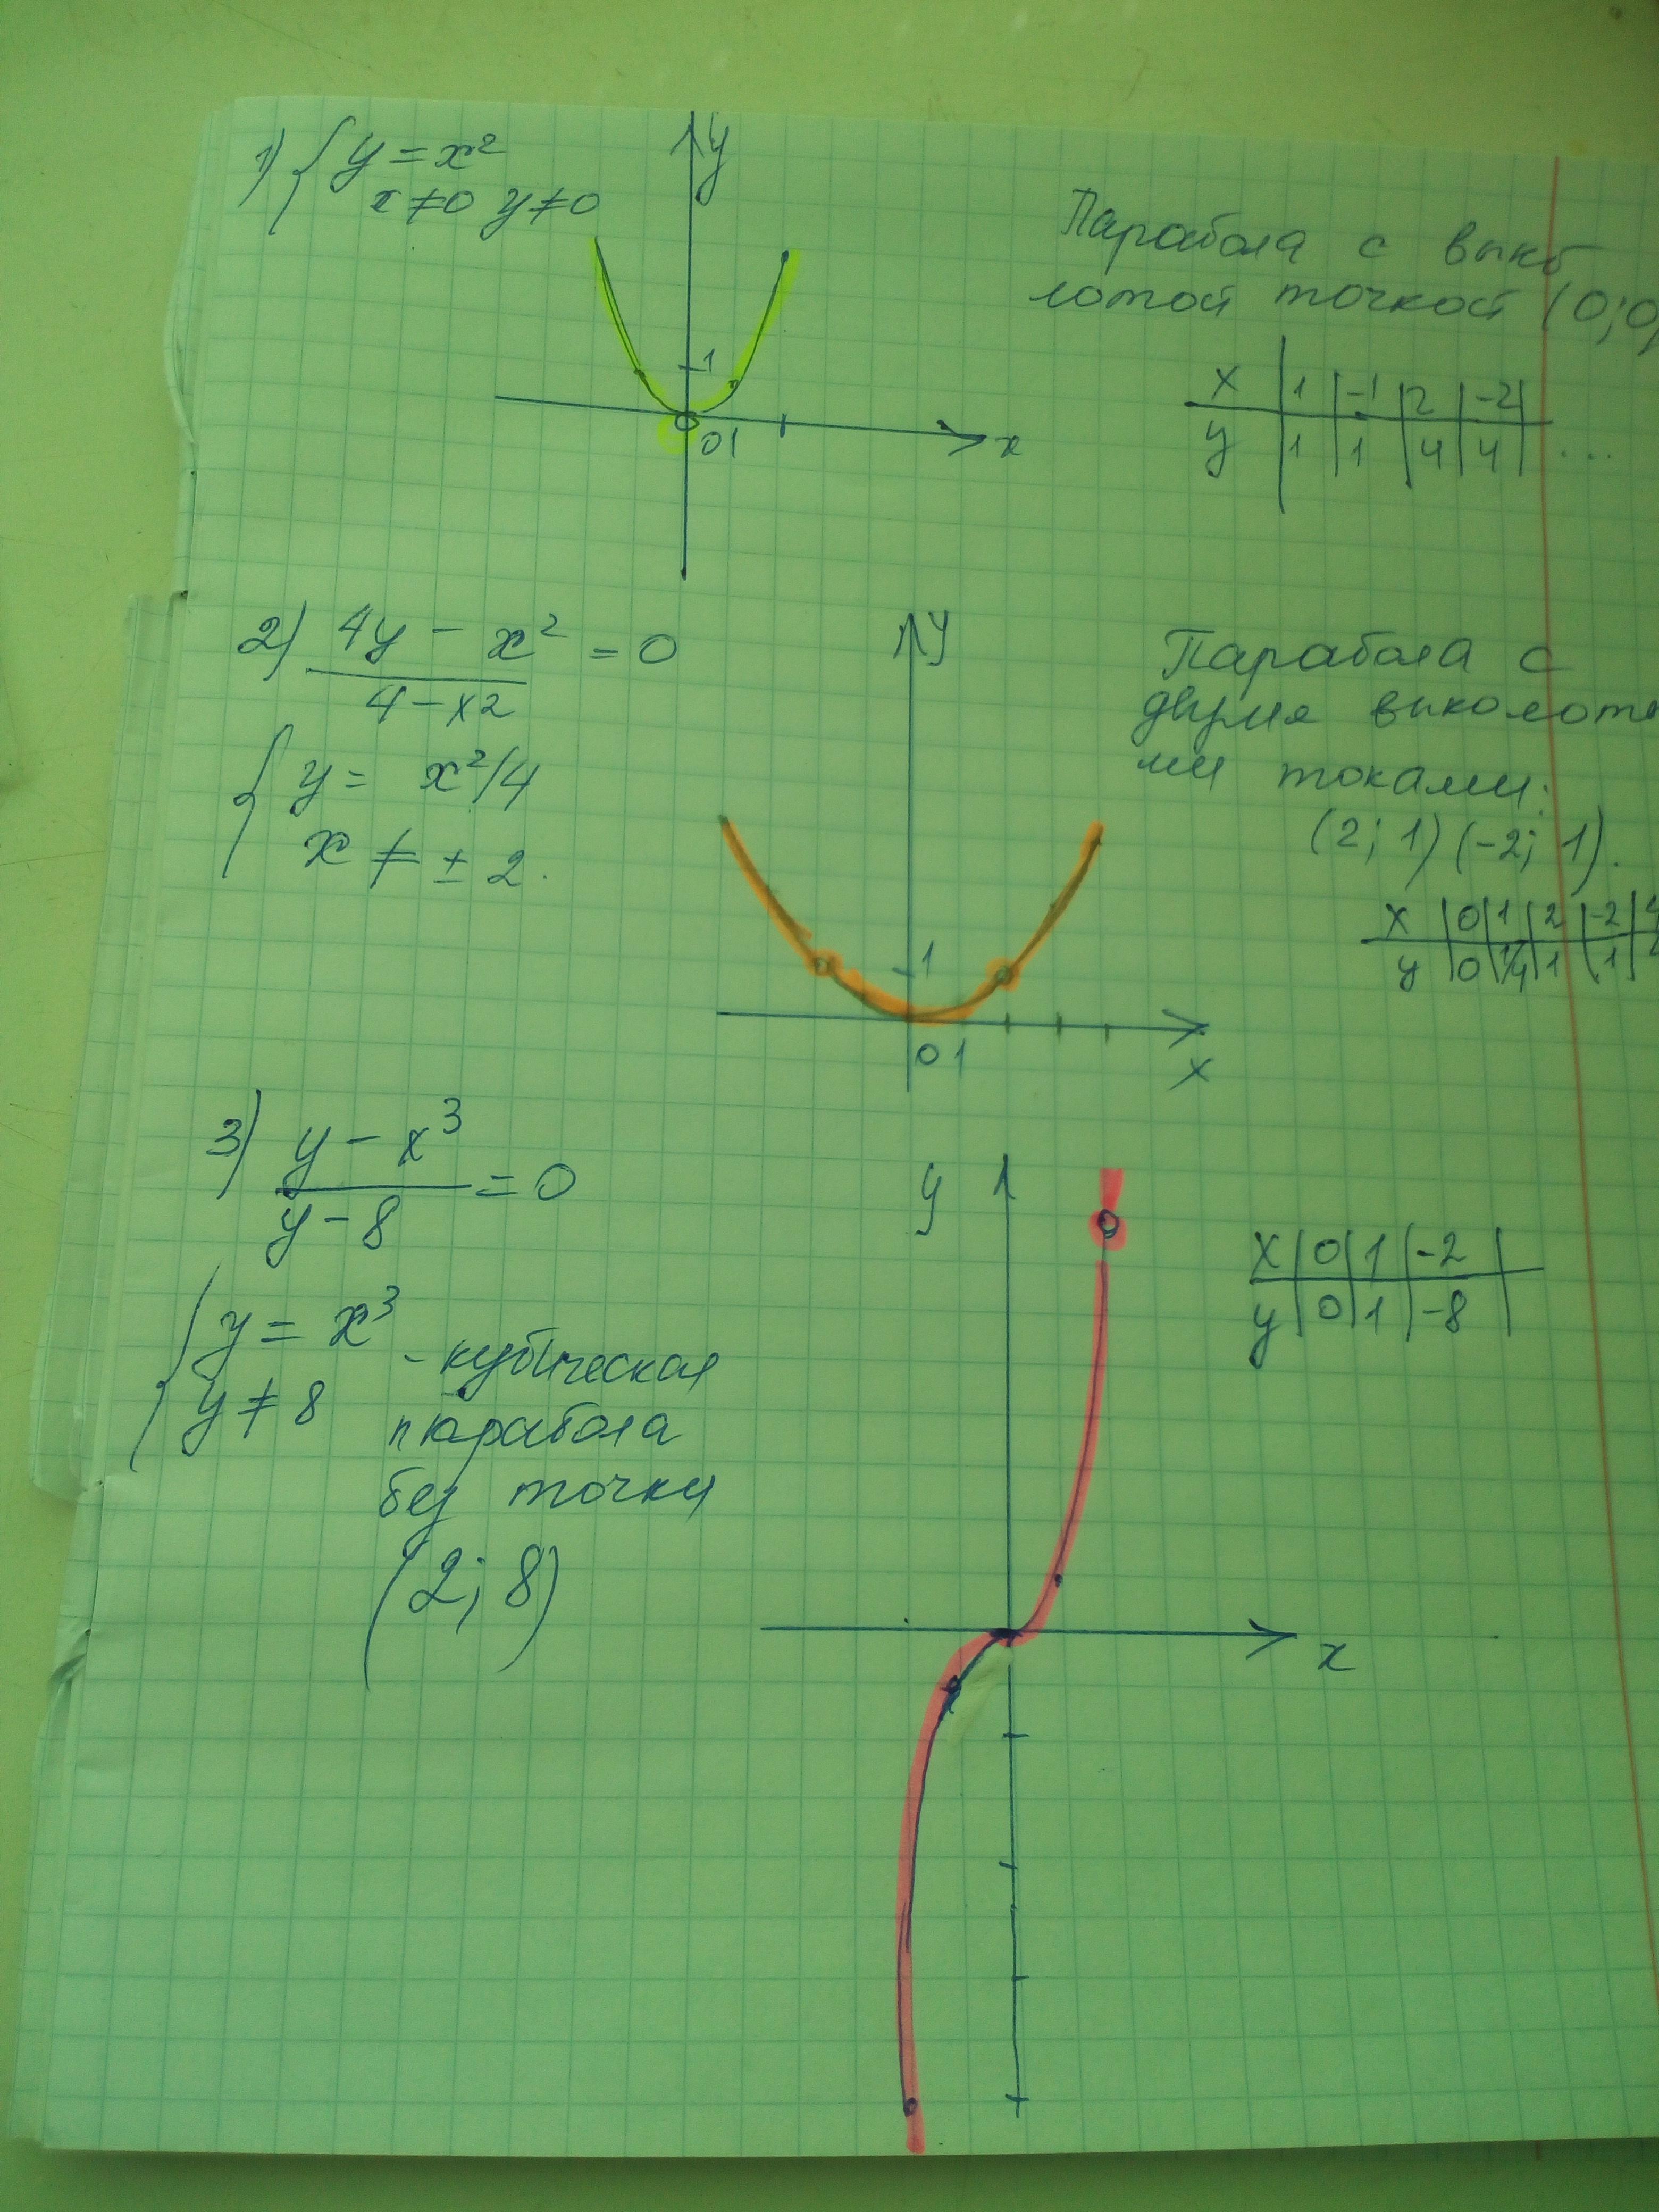 1) { y = x²
x ≠ 0 y ≠ 0
y
1
0 1
x
Парабола с выко
лотой точкой (0;0
x | 1 | -1 | 2 | -2 |
y | 1 | 1 | 4 | 4 | ...
2) 4y - x² = 0
4 - x2
{ y = x²/4
x ≠ ± 2.
y
1
0 1
x
Парабола с
двумя выколоты
ми токами:
(2; 1) (-2; 1).
x | 0 | 1 | 2 | -2 | 4
y | 0 | 1/4 | 1 | 1 |
3) y - x³ = 0
y - 8
{ y = x³
y ≠ 8
- кубическая
парабола
без точки
(2; 8)
y
x
x | 0 | 1 | -2 |
y | 0 | 1 | -8 |